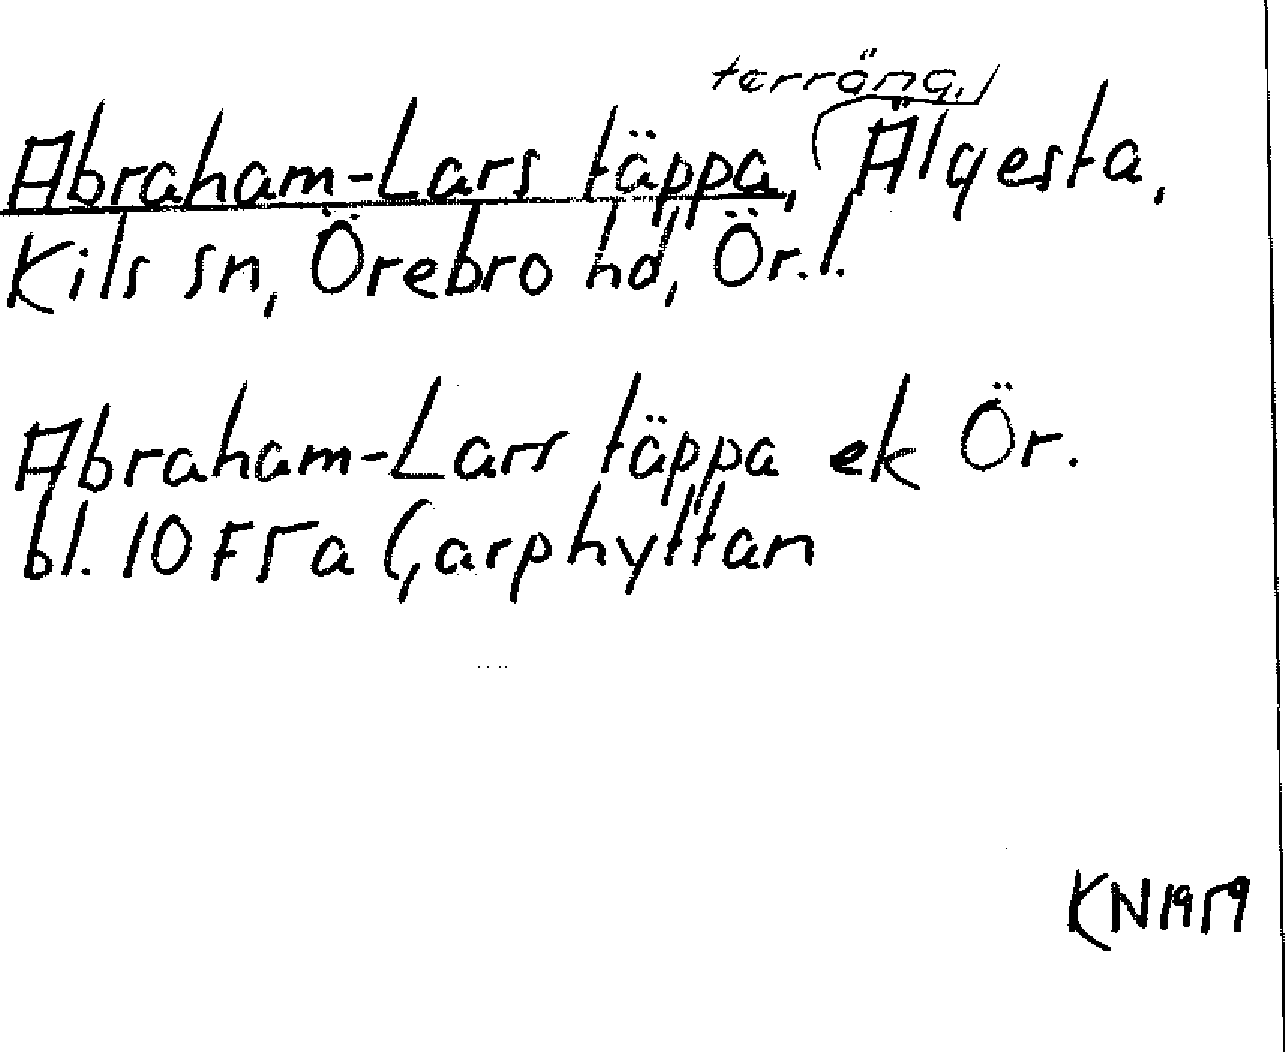 terräng,
Abraham-Lars täppa, Älgesta,
Kils sn, Örebro hd, Ör.l.
Abraham-Lars täppa ek Ör.
bl. 10 F 5 a Garphyttan
KN 1959